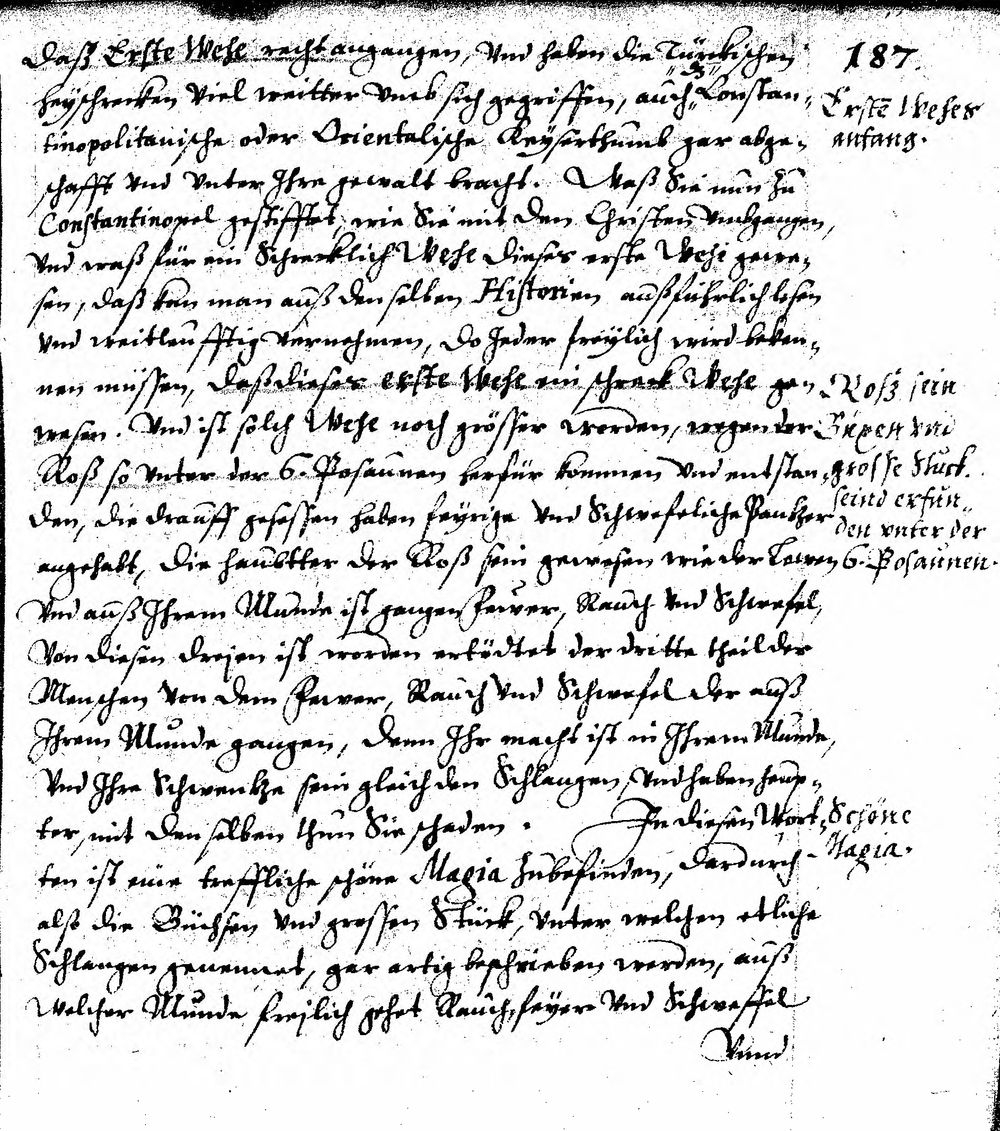 187.
daß Erste Wehe recht angangen, Vnd haben die Türckischen
heyschrecken Viel weitter vmb sich gegriffen, auch dz Constan-
tinopolitanische oder Orientalische Keyserthumb gar abge-
schafft Vnd Vnter Ihre gewalt bracht. Waß Sie nun zu
Constantinopel gestifftet, wie Sie mit den Christen vmbgangen,
Vnd waß für ein Schrecklich Wehe dieses erste Wehe gewe-
sen, daß kan man auß denselben Historien außführlich lesen
Vnd weitleufftig Vernehmen, do Jeder freylich wird beken-
nen müssen, daß dieses erste Wehe ein schreck Wehe gen
wesen. Vnd ist solch Wehe noch grösser worden, wegen der
Roß so Vnter der 6. Posaunen herfür kommen Vnd entstan-
den, die drauff gesessen haben feyrige Vnd Schwefeliche Pantzer
angehabt, die häubtter der Roß sein gewesen wie der Lewen
Vnd auß Ihrem Munde ist gangen Fewer, Rauch Vnd Schwefel,
Von diesen dreyen ist worden ertödtet der dritte theil der
Menschen Von dem Fewer, Rauch Vnd Schwefel der auß
Ihrem Munde gangen, denn Ihr macht ist in Ihrem Munde,
Vnd Ihre Schwentze sein gleich den Schlangen, Vnd haben heup-
ter, mit denselben thun Sie schaden. In diesen Wort-
ten ist eine treffliche schöne Magia Zubefinden, dardurch
alß die Büchsen Vnd grossen Stück, Vnter welchen etliche
Schlangen genennet, gar artig beschrieben werden, auß
Welcher Munde freilich gehet Rauch, feyer Vnd Schweffel
Vnnd
Erstē Wehes
anfang.
Roß sein
Büxen vnd
grosse Stuck.
seind erfun-
den vnter der
6. Posaunen.
Schöne
Magia.